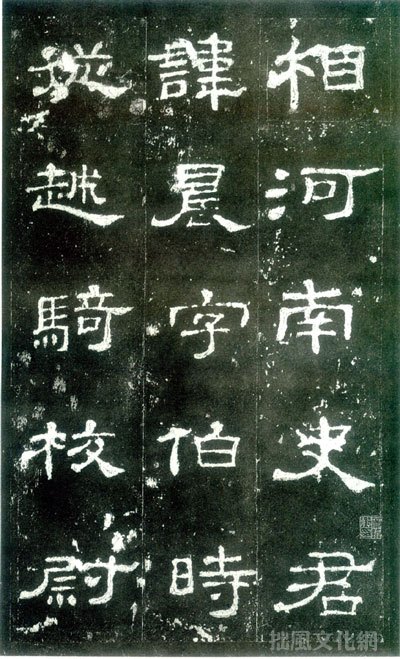 相河南史君
讳晨字伯時
從越騎校尉
拙風文化網